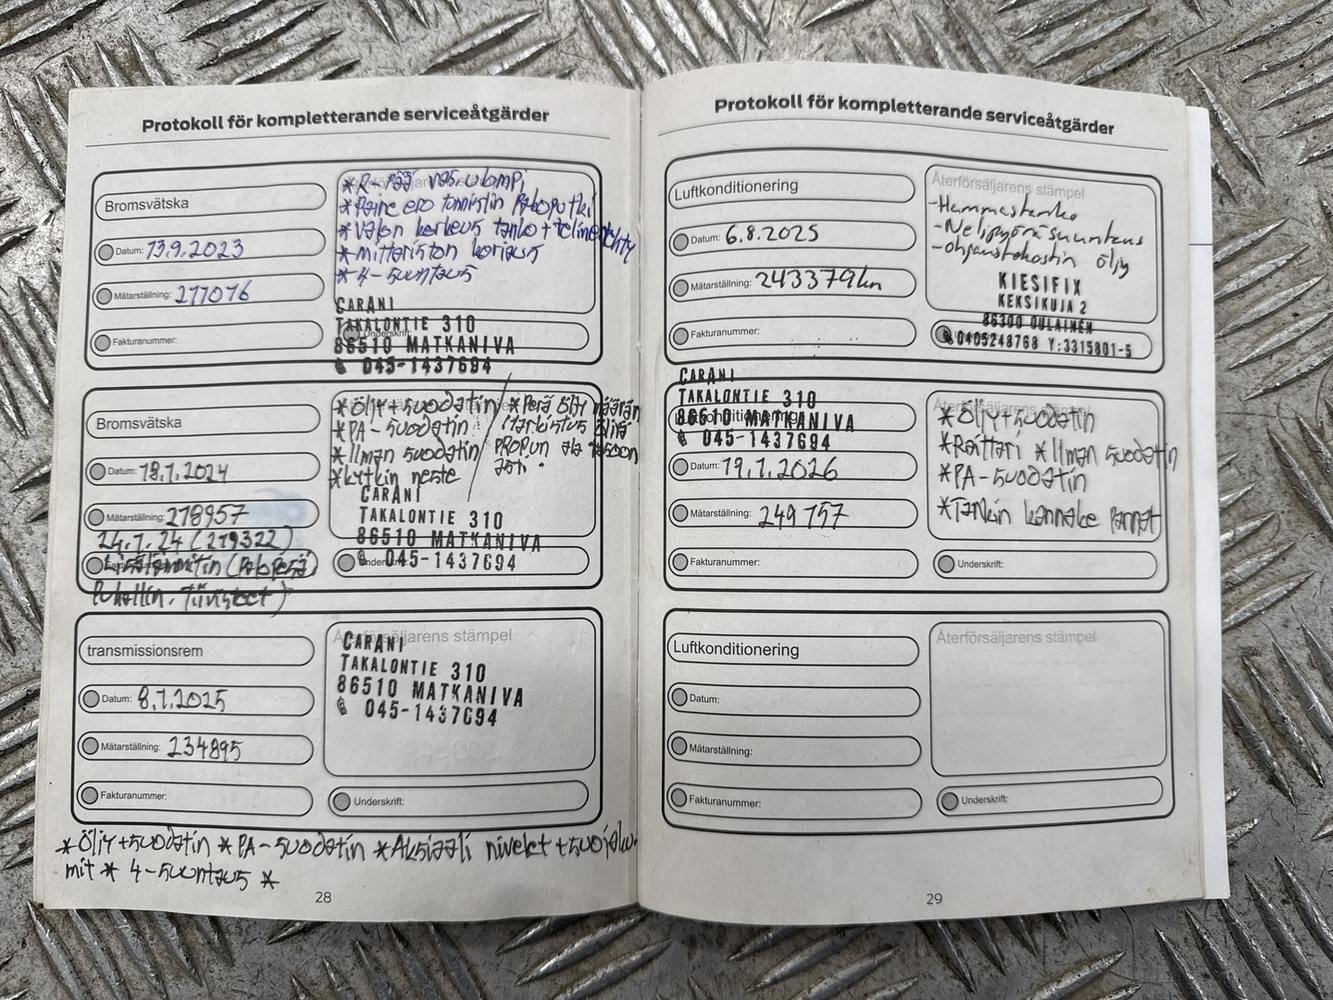 Protokoll för kompletterande serviceåtgärder
Bromsvätska
Datum: 13.9.2023
Mätarställning: 217076
Fakturanummer:
*R-pää vas ulompi
*Paine ero tunnistin Pakoputki
*Valon korkeus tanko +
*mittariston korjaus
*4-suuntaus
CARANI
TAKALONTIE 310
86510 MATKANIVA
045-1437694
Bromsvätska
Datum: 18.7.2024
Mätarställning: 218957
24.7.24 (219322)
*Öljy+suodatin
*PA-suodatin
*Ilman suodatin
*kytkin neste
*Perä öljy määrän
tarkistus
CARANI
TAKALONTIE 310
86510 MATKANIVA
045-1437694
transmissionsrem
Datum: 8.7.2025
Mätarställning: 234895
Fakturanummer:
Återförsäljarens stämpel
CARANI
TAKALONTIE 310
86510 MATKANIVA
045-1437694
Underskrift:
*Öljy+suodatin *PA-suodatin *Aksiaali nivelet +suojaku-
mit * 4-suuntaus *
28
Protokoll för kompletterande serviceåtgärder
Luftkonditionering
Datum: 6.8.2025
Mätarställning: 243379km
Fakturanummer:
Återförsäljarens stämpel
-Hammastanko
-Nelipyöräsuuntaus
-ohjaustehostin öljy
KIESIFIX
KEKSIKUJA 2
86300 OULAINEN
0405248768 Y:3315801-5
CARANI
TAKALONTIE 310
86510 MATKANIVA
045-1437694
Luftkonditionering
Datum: 19.1.2026
Mätarställning: 249757
Fakturanummer:
Återförsäljarens stämpel
*Öljy+suodatin
*Raittari *Ilman suodatin
*PA-suodatin
*Tankin kannake pannat
Underskrift:
Luftkonditionering
Datum:
Mätarställning:
Fakturanummer:
Återförsäljarens stämpel
Underskrift:
29